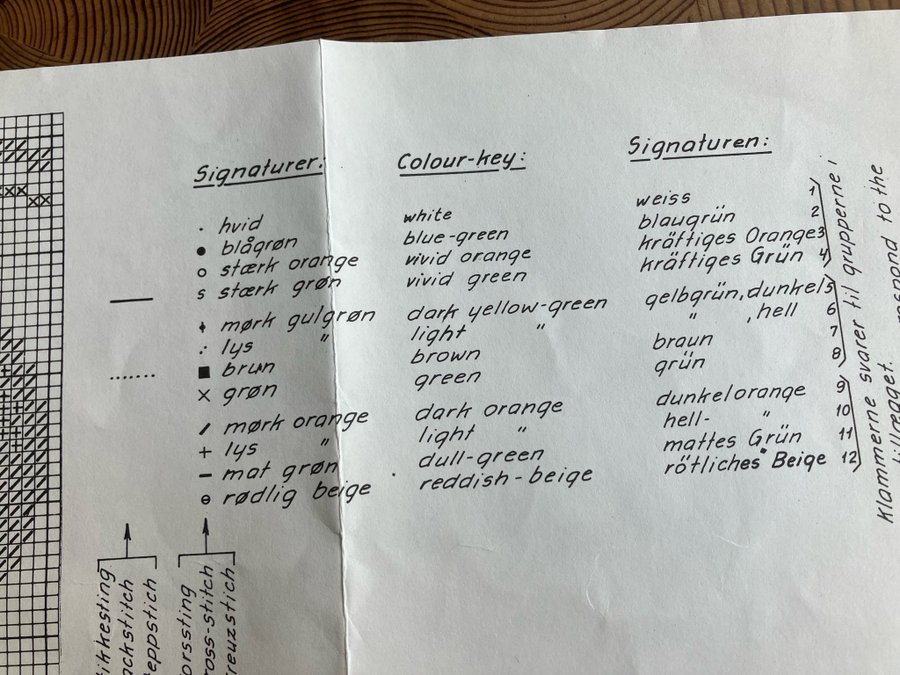 Signaturer: Colour-key: Signaturen:
· hvid white weiss 1
● blågrøn blue-green blaugrün 2
o stærk orange vivid orange kräftiges Orange 3
s stærk grøn vivid green kräftiges Grün 4
mørk gulgrøn dark yellow-green gelbgrün, dunkel 5
lys " light " " , hell 6
■ brun brown braun 7
x grøn green grün 8
/ mørk orange dark orange dunkelorange 9
+ lys " light " hell- " 10
- mat grøn dull-green mattes Grün 11
⊖ rødlig beige reddish-beige rötliches Beige 12
Klammerne svarer til grupperne i
to the